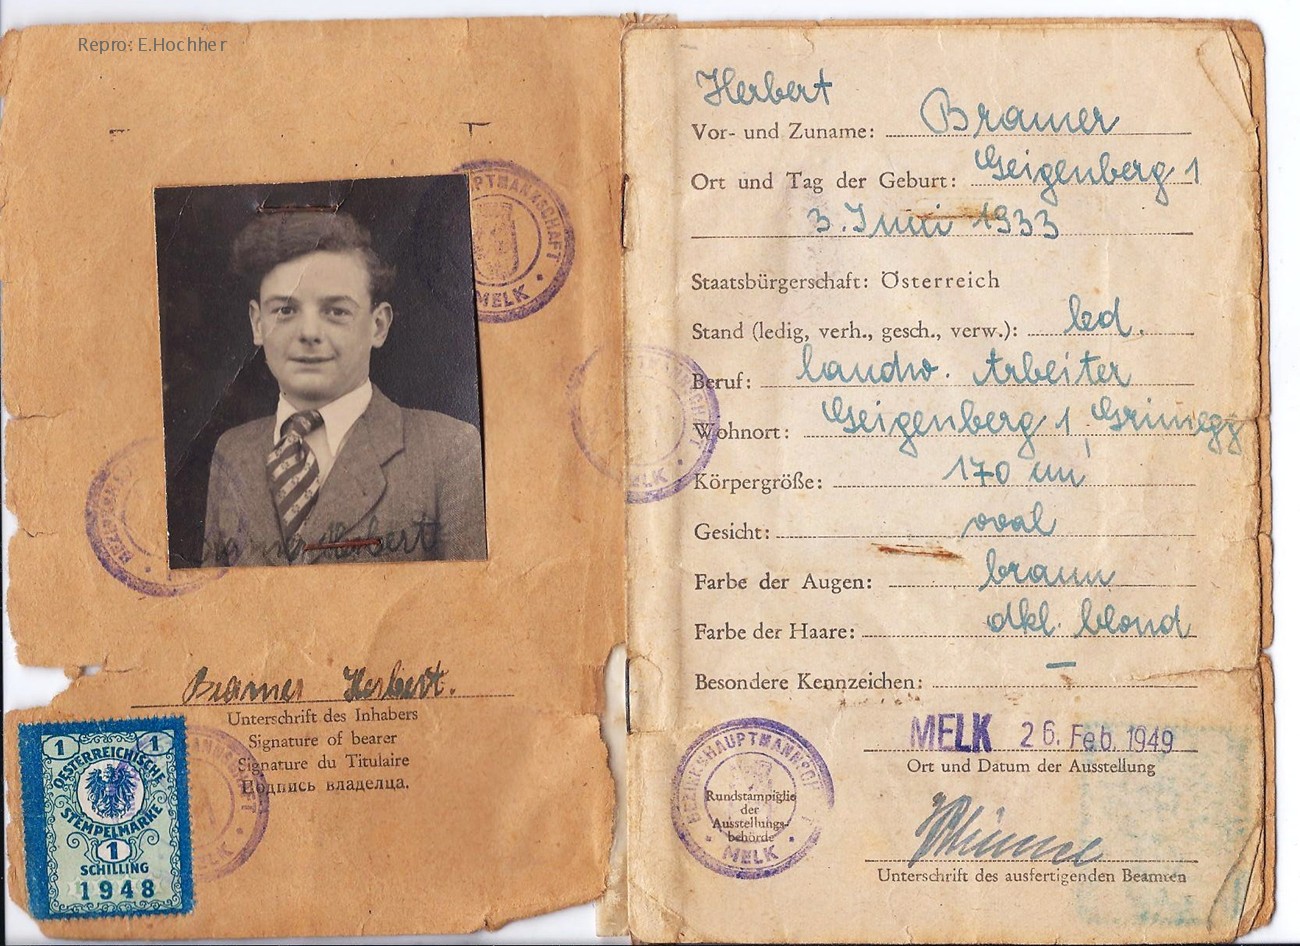 Repro: E.Hochher
HAUPTMANNSCHAFT
MELK
Herbert
Bramer Herbert.
Unterschrift des Inhabers
Signature of bearer
Signature du Titulaire
Подпись владельца.
1 1
ÖSTERREICHISCHE
STEMPELMARKE
1
SCHILLING
1948
Herbert
Vor- und Zuname: Bramer
Ort und Tag der Geburt: Geigenberg 1
3. Juni 1933
Staatsbürgerschaft: Österreich
Stand (ledig, verh., gesch., verw.): led.
Beruf: landw. Arbeiter
Wohnort: Geigenberg 1,
Körpergröße: 170 cm
Gesicht: oval
Farbe der Augen: braun
Farbe der Haare: dkl. blond
Besondere Kennzeichen: —
MELK 26. Feb. 1949
Ort und Datum der Ausstellung
BEZIRKSHAUPTMANNSCHAFT
Rundstampiglie
der
Ausstellungs-
behörde
MELK
Unterschrift des ausfertigenden Beamten